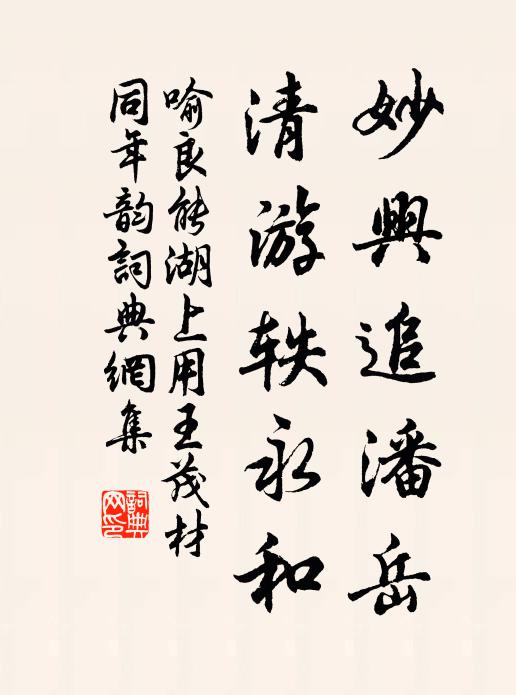 妙興追潘岳
清游軼永和
喻良能湖上用王茂材
同年韵詞典網集
詞典网印